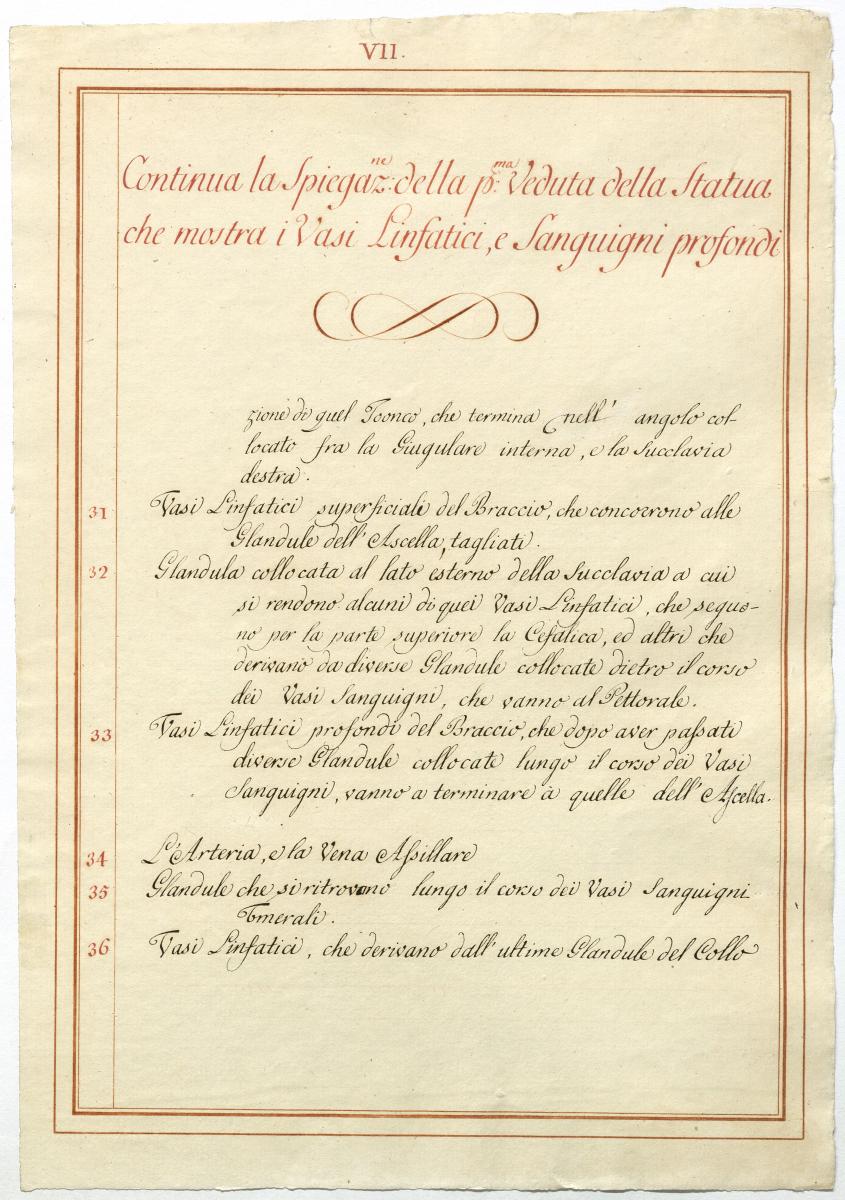 VII.
Continua la Spiegaz:ne della p:ma Veduta della Statua
che mostra i Vasi Linfatici, e Sanguigni profondi
zione di quel Tronco, che termina nell' angolo col-
locato fra la Giugulare interna, e la Succlavia
destra.
31 Vasi Linfatici superficiali del Braccio, che concorrono alle
Glandule dell' Ascella, tagliati.
32 Glandula collocata al lato esterno della Succlavia a cui
si rendono alcuni di quei Vasi Linfatici, che seguo-
no per la parte superiore la Cefalica, ed altri che
derivano da diverse Glandule collocate dietro il corso
dei Vasi Sanguigni, che vanno al Pettorale.
33 Vasi Linfatici profondi del Braccio, che dopo aver passati
diverse Glandule collocate lungo il corso dei Vasi
Sanguigni, vanno a terminare a quelle dell' Ascella.
34 L'Arteria, e la Vena Assillare
35 Glandule che si ritrovano lungo il corso dei Vasi Sanguigni
Omerali.
36 Vasi Linfatici, che derivano dall' ultime Glandule del Collo